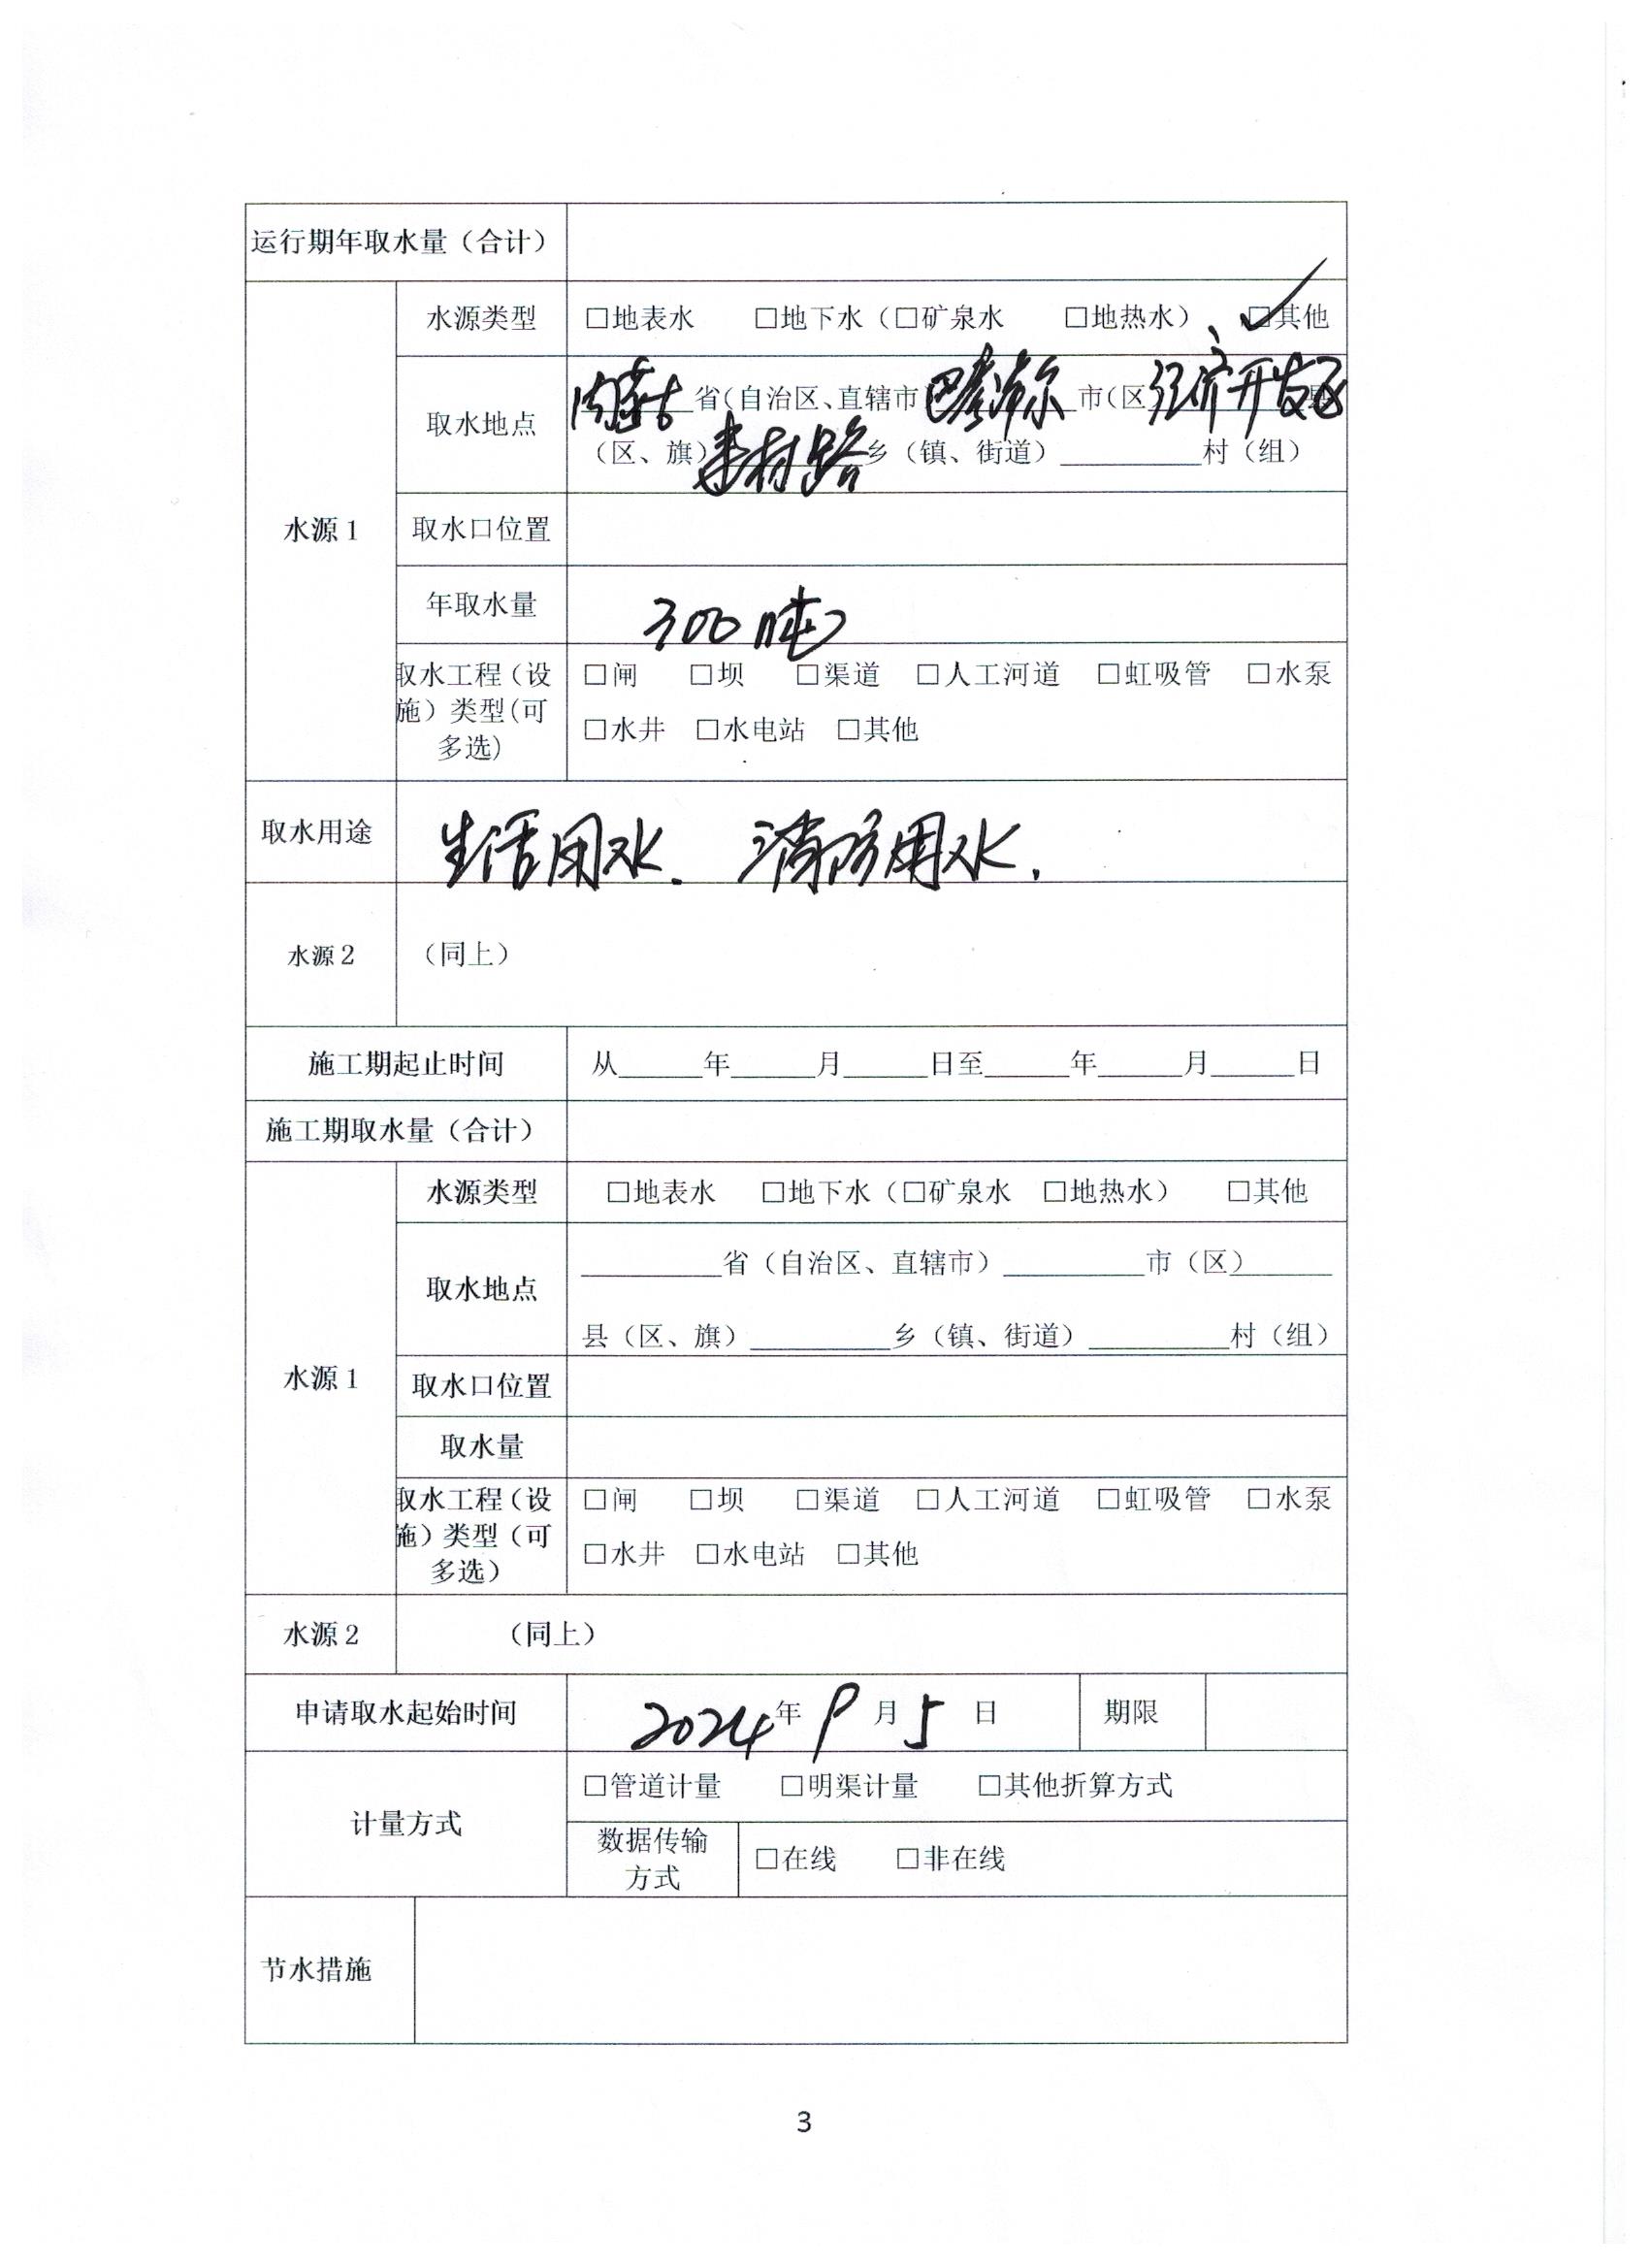 运行期年取水量（合计）
水源1
水源类型 □地表水 □地下水（□矿泉水 □地热水） ☑其他
取水地点 内蒙古省(自治区、直辖市)巴彦淖尔市(区)经济开发区县
（区、旗）____路乡（镇、街道）__________村（组）
取水口位置
年取水量 300吨
取水工程（设施）类型(可多选) □闸 □坝 □渠道 □人工河道 □虹吸管 □水泵
□水井 □水电站 □其他
取水用途 生活用水. 消防用水.
水源2 （同上）
施工期起止时间 从______年______月______日至______年______月______日
施工期取水量（合计）
水源1
水源类型 □地表水 □地下水（□矿泉水 □地热水） □其他
取水地点 __________省（自治区、直辖市）__________市（区）______
县（区、旗）__________乡（镇、街道）__________村（组）
取水口位置
取水量
取水工程（设施）类型（可多选） □闸 □坝 □渠道 □人工河道 □虹吸管 □水泵
□水井 □水电站 □其他
水源2 （同上）
申请取水起始时间 2024年9月5日 期限
计量方式 □管道计量 □明渠计量 □其他折算方式
数据传输方式 □在线 □非在线
节水措施
3